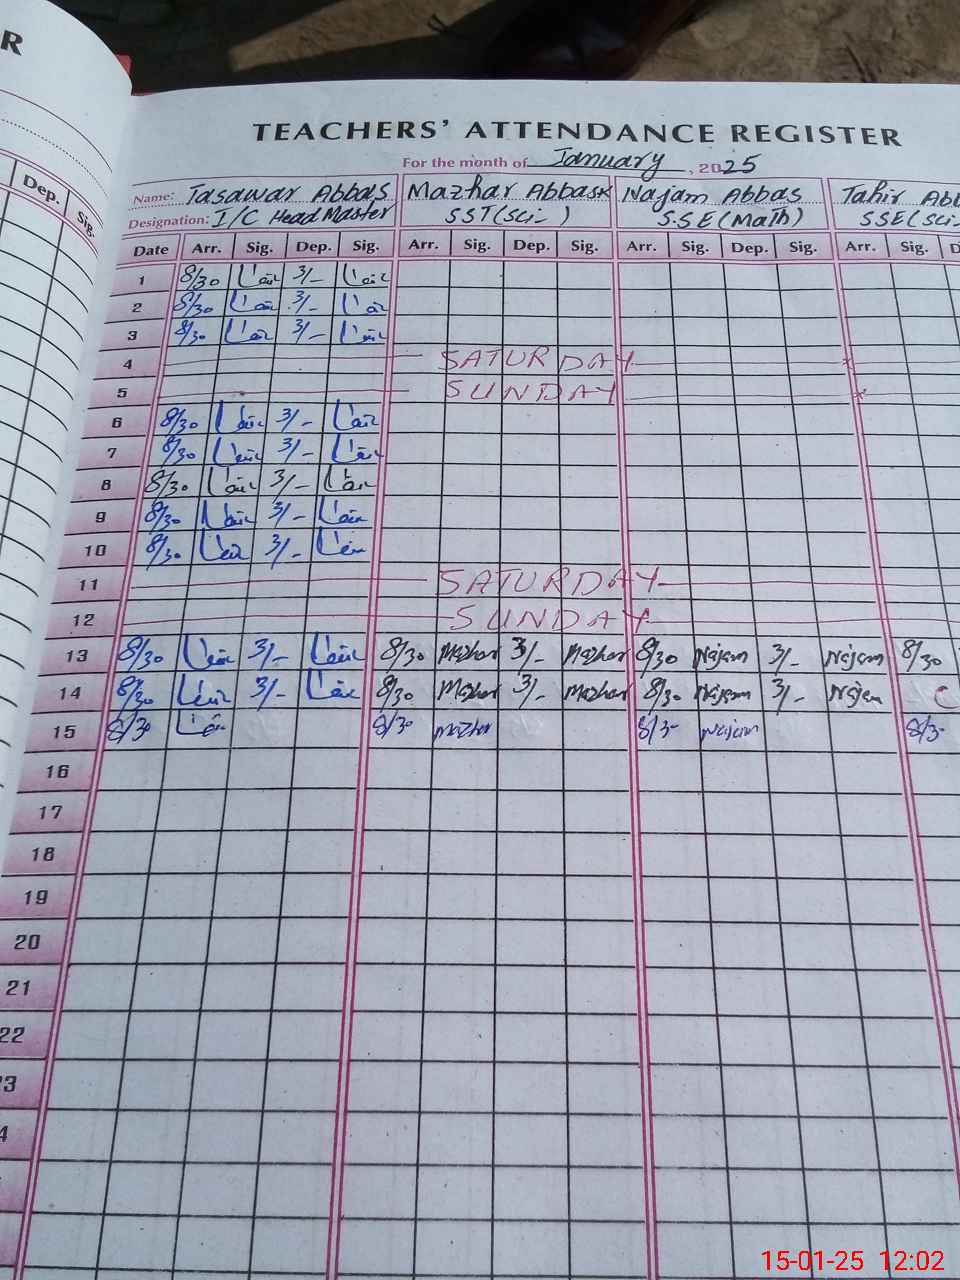 R
TEACHERS' ATTENDANCE REGISTER
For the month of January, 2025
Dep. Sig.
Name: Tasawar Abbas Mazhar Abbas Najam Abbas Tahir Abb
Designation: I/C Head Master SST(Sci- ) S.S.E(Math) SSE(Sci-
Date Arr. Sig. Dep. Sig. Arr. Sig. Dep. Sig. Arr. Sig. Dep. Sig. Arr. Sig. D
1 8/30 3/-
2 8/30 3/-
3 8/30 3/-
4 SATURDAY
5 SUNDAY
6 8/30 3/-
7 8/30 3/-
8 8/30 3/-
9 8/30 3/-
10 8/30 3/-
11 SATURDAY
12 SUNDAY
13 8/30 3/- 8/30 Mazhar 3/- Mazhar 8/30 Najam 3/- Najam 8/30
14 8/30 3/- 8/30 Mazhar 3/- Mazhar 8/30 Najam 3/- Najam
15 8/30 8/30 Mazhar 8/3- Najam 8/3-
16
17
18
19
20
21
22
3
4
15-01-25 12:02